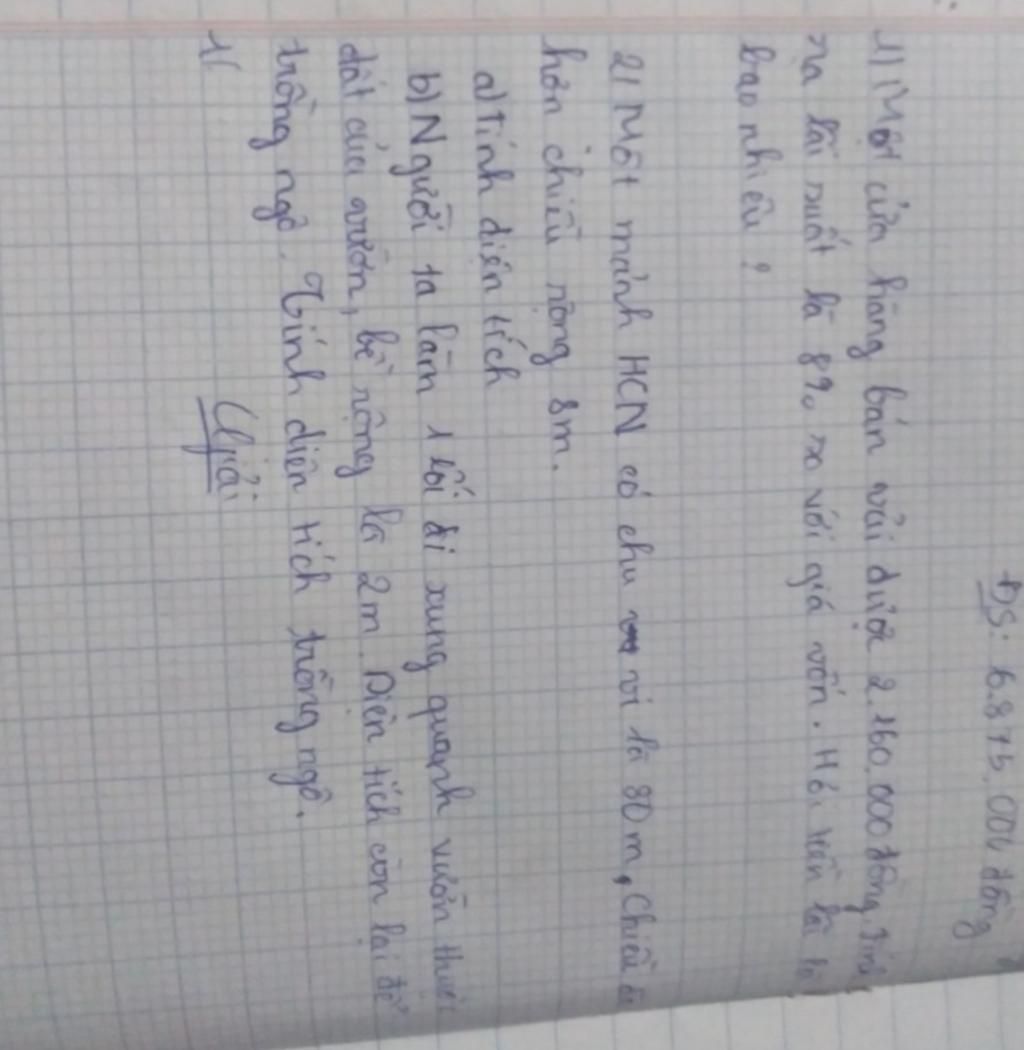 ĐS: 6.875.000 đồng
1) Một cửa hàng bán vải được 2.160.000 đồng. Tính
ra lãi suất là 8% so với giá vốn. Hỏi tiền lãi là
bao nhiêu?
2) Một mảnh HCN có chu vi là 80m, Chiều dài
hơn chiều rộng 8m.
a) Tính diện tích
b) Người ta làm 1 lối đi xung quanh vườn thuộc
đất của vườn, bề rộng là 2m. Diện tích còn lại để
trồng ngô. Tính diện tích trồng ngô.
Giải
1(